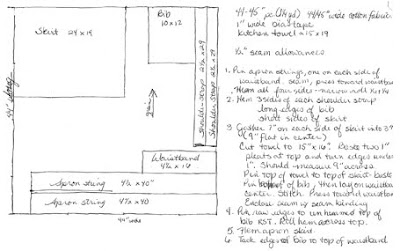 Skirt 24 x 19
Bib
10 x 12
Shoulder strap 2½ x 29
Shoulder strap 2½ x 29
Waistband
4½ x 16
Apron string 4½ x 40"
Apron string 4½ x 40
44" wide
44-45" 44/45" wide cotton fabric
1" wide bias tape
Kitchen towel = 15 x 19
½" seam allowances
1. Pin apron strings, one on each side of
waistband. Seam, press toward
Hem all four sides - narrow
2. Hem 3 sides of each shoulder strap
long edges of bib
short sides of skirt
3. Gather 7" on each side of skirt into
(9" flat in center)
Cut towel to 15" x 16". Baste two 1"
pleats at top and turn edges under
½". Should measure 9" across.
Pin top of towel to top of skirt. Baste
Pin of bib, then lay on
center. Stitch. Press toward
Enclose seam in seam binding
4. Pin raw edges to unhemmed top of
bib RST. Roll hem across top.
5. Hem apron skirt
6. Tack edges of bib to top of waistband